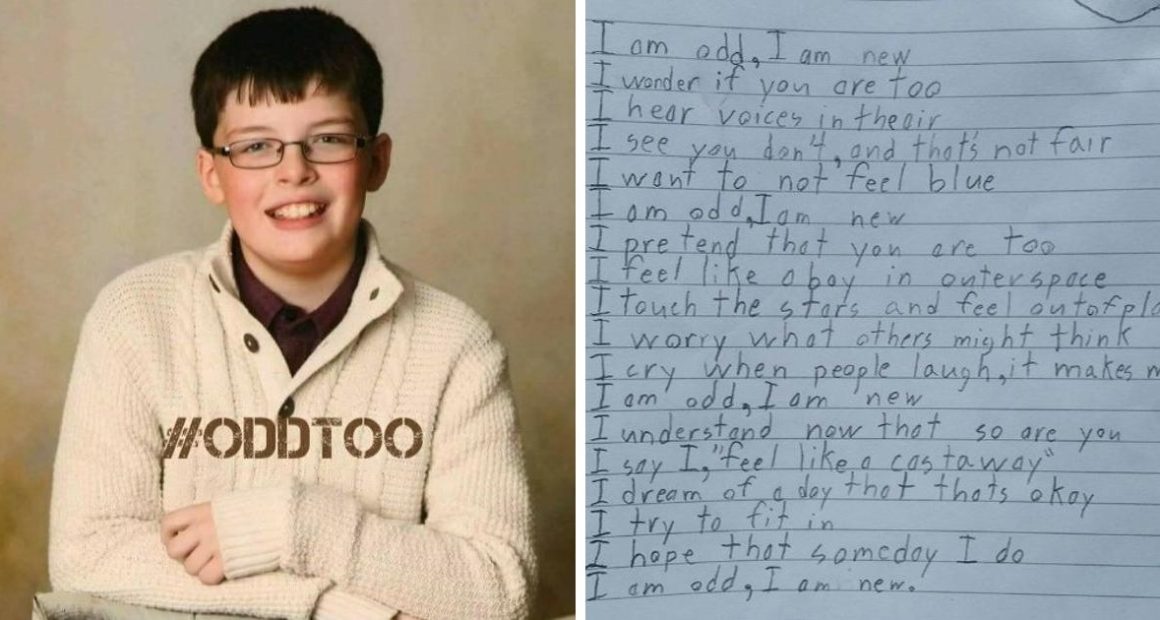 #ODDTOO
I am odd, I am new
I wonder if you are too
I hear voices in theair
I see you don't, and that's not fair
I want to not feel blue
I am odd, I am new
I pretend that you are too
I feel like a boy in outerspace
I touch the stars and feel outof
I worry what others might think
I cry when people laugh, it makes
I am odd, I am new
I understand now that so are you
I say I, "feel like a castaway"
I dream of a day that thats okay
I try to fit in
I hope that someday I do
I am odd, I am new.